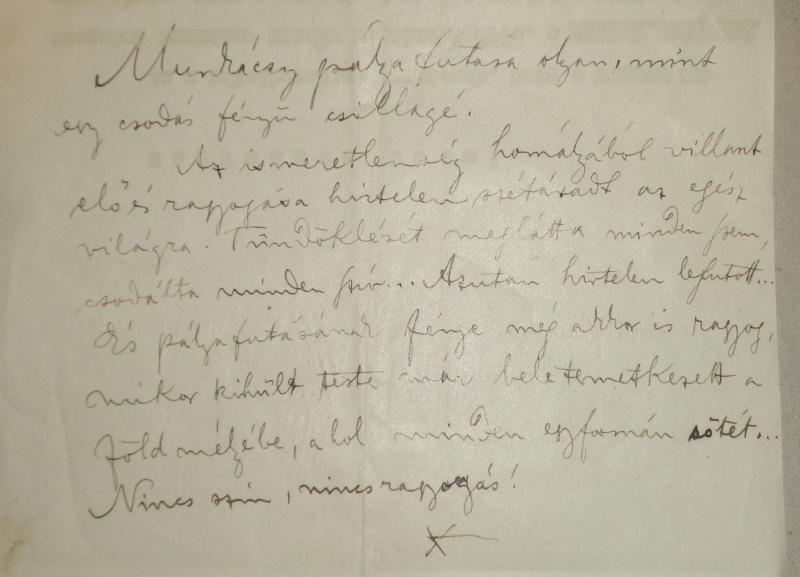 Munkácsy pályafutása olyan, mint
egy csodás fényű csillagé.
Az ismeretlenség homályából villant
elő és ragyogása hirtelen szétáradt az egész
világra. Tündöklését meglátta minden szem,
csodálta minden szív... Azután hirtelen lefutott...
És pályafutásának fénye még akkor is ragyog,
mikor kihült teste már beletemetkezett a
föld mélyébe, ahol minden egyformán sötét...
Nincs szín, nincs ragyogás!